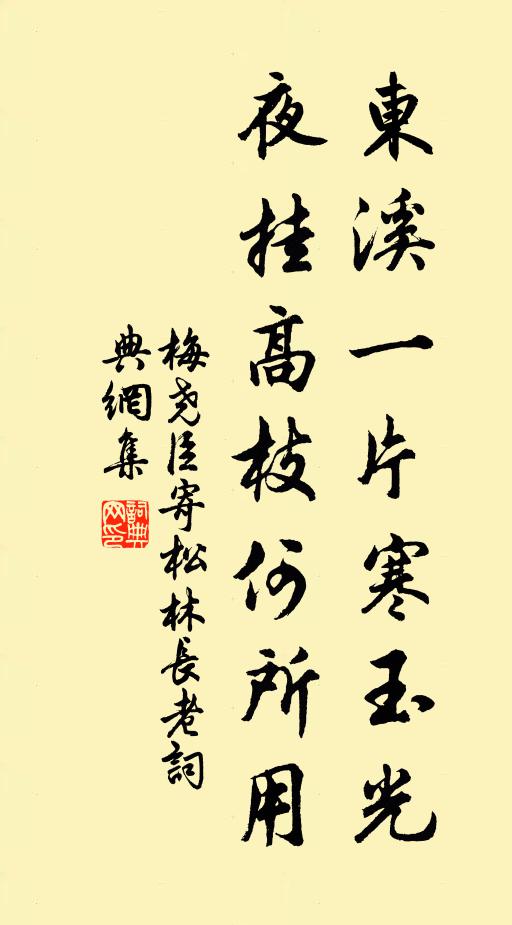 東溪一片寒玉光
夜挂高枝何所用
梅尧臣寄松林長老詞
典網集
詞典
网印